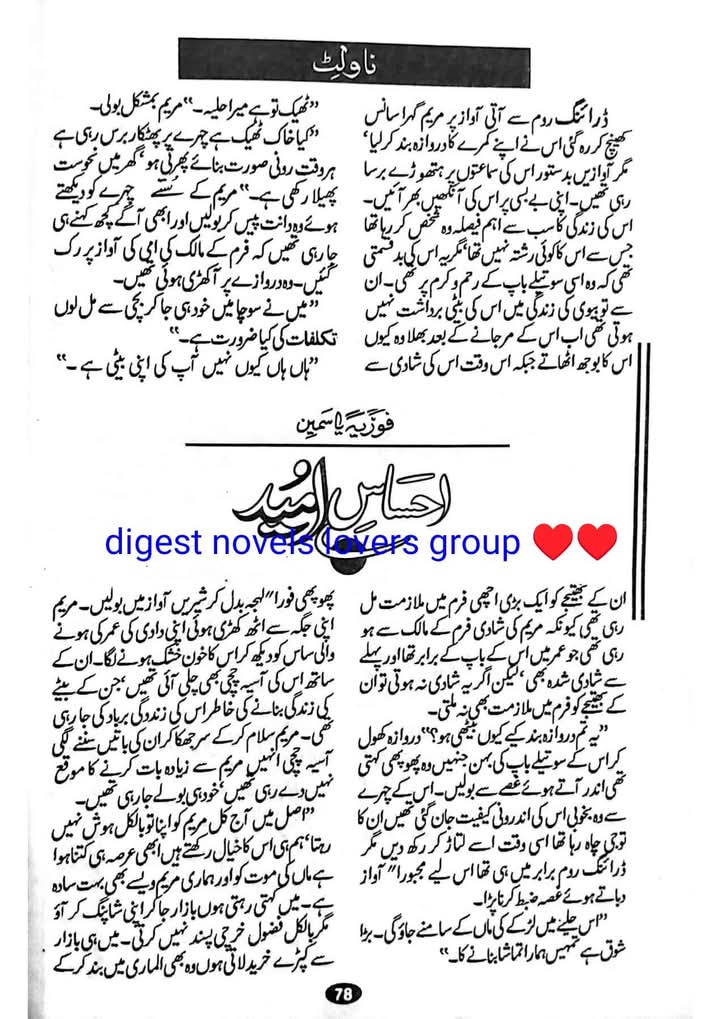 ناولٹ
ڈرائنگ روم سے آتی آواز پر مریم گہرا سانس
کھینچ کر رہ گئی اس نے اپنے کمرے کا دروازہ بند کر لیا‘
مگر آوازیں بدستور اس کی سماعتوں پر ہتھوڑے برسا
رہی تھیں۔ اپنی بے بسی پر اس کی آنکھیں بھر آئیں۔
اس کی زندگی کا سب سے اہم فیصلہ وہ شخص کر رہا تھا
جس سے اس کا کوئی رشتہ نہیں تھا‘ مگر یہ اس کی بدقسمتی
تھی کہ وہ اسی سوتیلے باپ کے رحم و کرم پر تھی۔ ان
سے تو بیوی کی زندگی میں اس کی بیٹی برداشت نہیں
ہوتی تھی اب اس کے مر جانے کے بعد بھلا وہ کیوں
اس کا بوجھ اٹھاتے جبکہ اس وقت اس کی شادی سے
”ٹھیک تو ہے میرا حلیہ۔“ مریم بمشکل بولی۔
”کیا خاک ٹھیک ہے چہرے پر پھٹکار برس رہی ہے
ہر وقت رونی صورت بنائے پھرتی ہو‘ گھر میں نحوست
پھیلا رکھی ہے۔“ مریم کے ستے چہرے کو دیکھتے
ہوئے وہ دانت پیس کر بولیں اور ابھی آگے کچھ کہنے ہی
جا رہی تھیں کہ فرم کے مالک کی امی کی آواز پر رک
گئیں۔ وہ دروازے پر آ کھڑی ہوئی تھیں۔
”میں نے سوچا میں خود ہی جا کر بچی سے مل لوں
تکلفات کی کیا ضرورت ہے۔“
”ہاں ہاں کیوں نہیں آپ کی اپنی بیٹی ہے۔“
فوزیہ یاسمین
احساسِ امید
digest novels lovers group ❤❤
ان کے بھتیجے کو ایک بڑی اچھی فرم میں ملازمت مل
رہی تھی کیونکہ مریم کی شادی فرم کے مالک سے ہو
رہی تھی جو عمر میں اس کے باپ کے برابر تھا اور پہلے
سے شادی شدہ بھی‘ لیکن اگر یہ شادی نہ ہوتی تو ان
کے بھتیجے کو فرم میں ملازمت بھی نہ ملتی۔
”یہ تم دروازہ بند کیے کیوں بیٹھی ہو؟“ دروازہ کھول
کر اس کے سوتیلے باپ کی بہن جنہیں وہ پھوپھی کہتی
تھی اندر آتے ہوئے غصے سے بولیں۔ اس کے چہرے
سے وہ بخوبی اس کی اندرونی کیفیت جان گئی تھیں ان کا
تو جی چاہ رہا تھا اسی وقت اسے لتاڑ کر رکھ دیں مگر
ڈرائنگ روم برابر میں ہی تھا اس لیے مجبوراً آواز
دباتے ہوئے غصہ ضبط کرنا پڑا۔
”اس حلیے میں لڑکے کی ماں کے سامنے جاؤ گی۔ بڑا
شوق ہے تمہیں ہمارا تماشا بنانے کا۔“
پھوپھی فوراً لہجہ بدل کر شیریں آواز میں بولیں۔ مریم
اپنی جگہ سے اٹھ کھڑی ہوئی اپنی دادی کی عمر کی ہونے
والی ساس کو دیکھ کر اس کا خون خشک ہونے لگا۔ ان کے
ساتھ اس کی آسیہ چچی بھی چلی آئی تھیں‘ جن کے بیٹے
کی زندگی بنانے کی خاطر اس کی زندگی برباد کی جا رہی
تھی۔ مریم سلام کر کے سر جھکا کر ان کی باتیں سننے لگی
آسیہ چچی انہیں مریم سے زیادہ بات کرنے کا موقع
نہیں دے رہی تھیں‘ خود ہی بولے جا رہی تھیں۔
”اصل میں آج کل مریم کو اپنا تو بالکل ہوش نہیں
رہتا‘ ہم ہی اس کا خیال رکھتے ہیں ابھی عرصہ ہی کتنا ہوا
ہے ماں کی موت کو اور ہماری مریم ویسے بھی بہت سادہ
ہے۔ میں کہتی رہتی ہوں بازار جا کر اپنی شاپنگ کر آؤ
مگر بالکل فضول خرچی پسند نہیں کرتی۔ میں ہی بازار
سے کپڑے خرید لاتی ہوں وہ بھی الماری میں بند کر کے
78